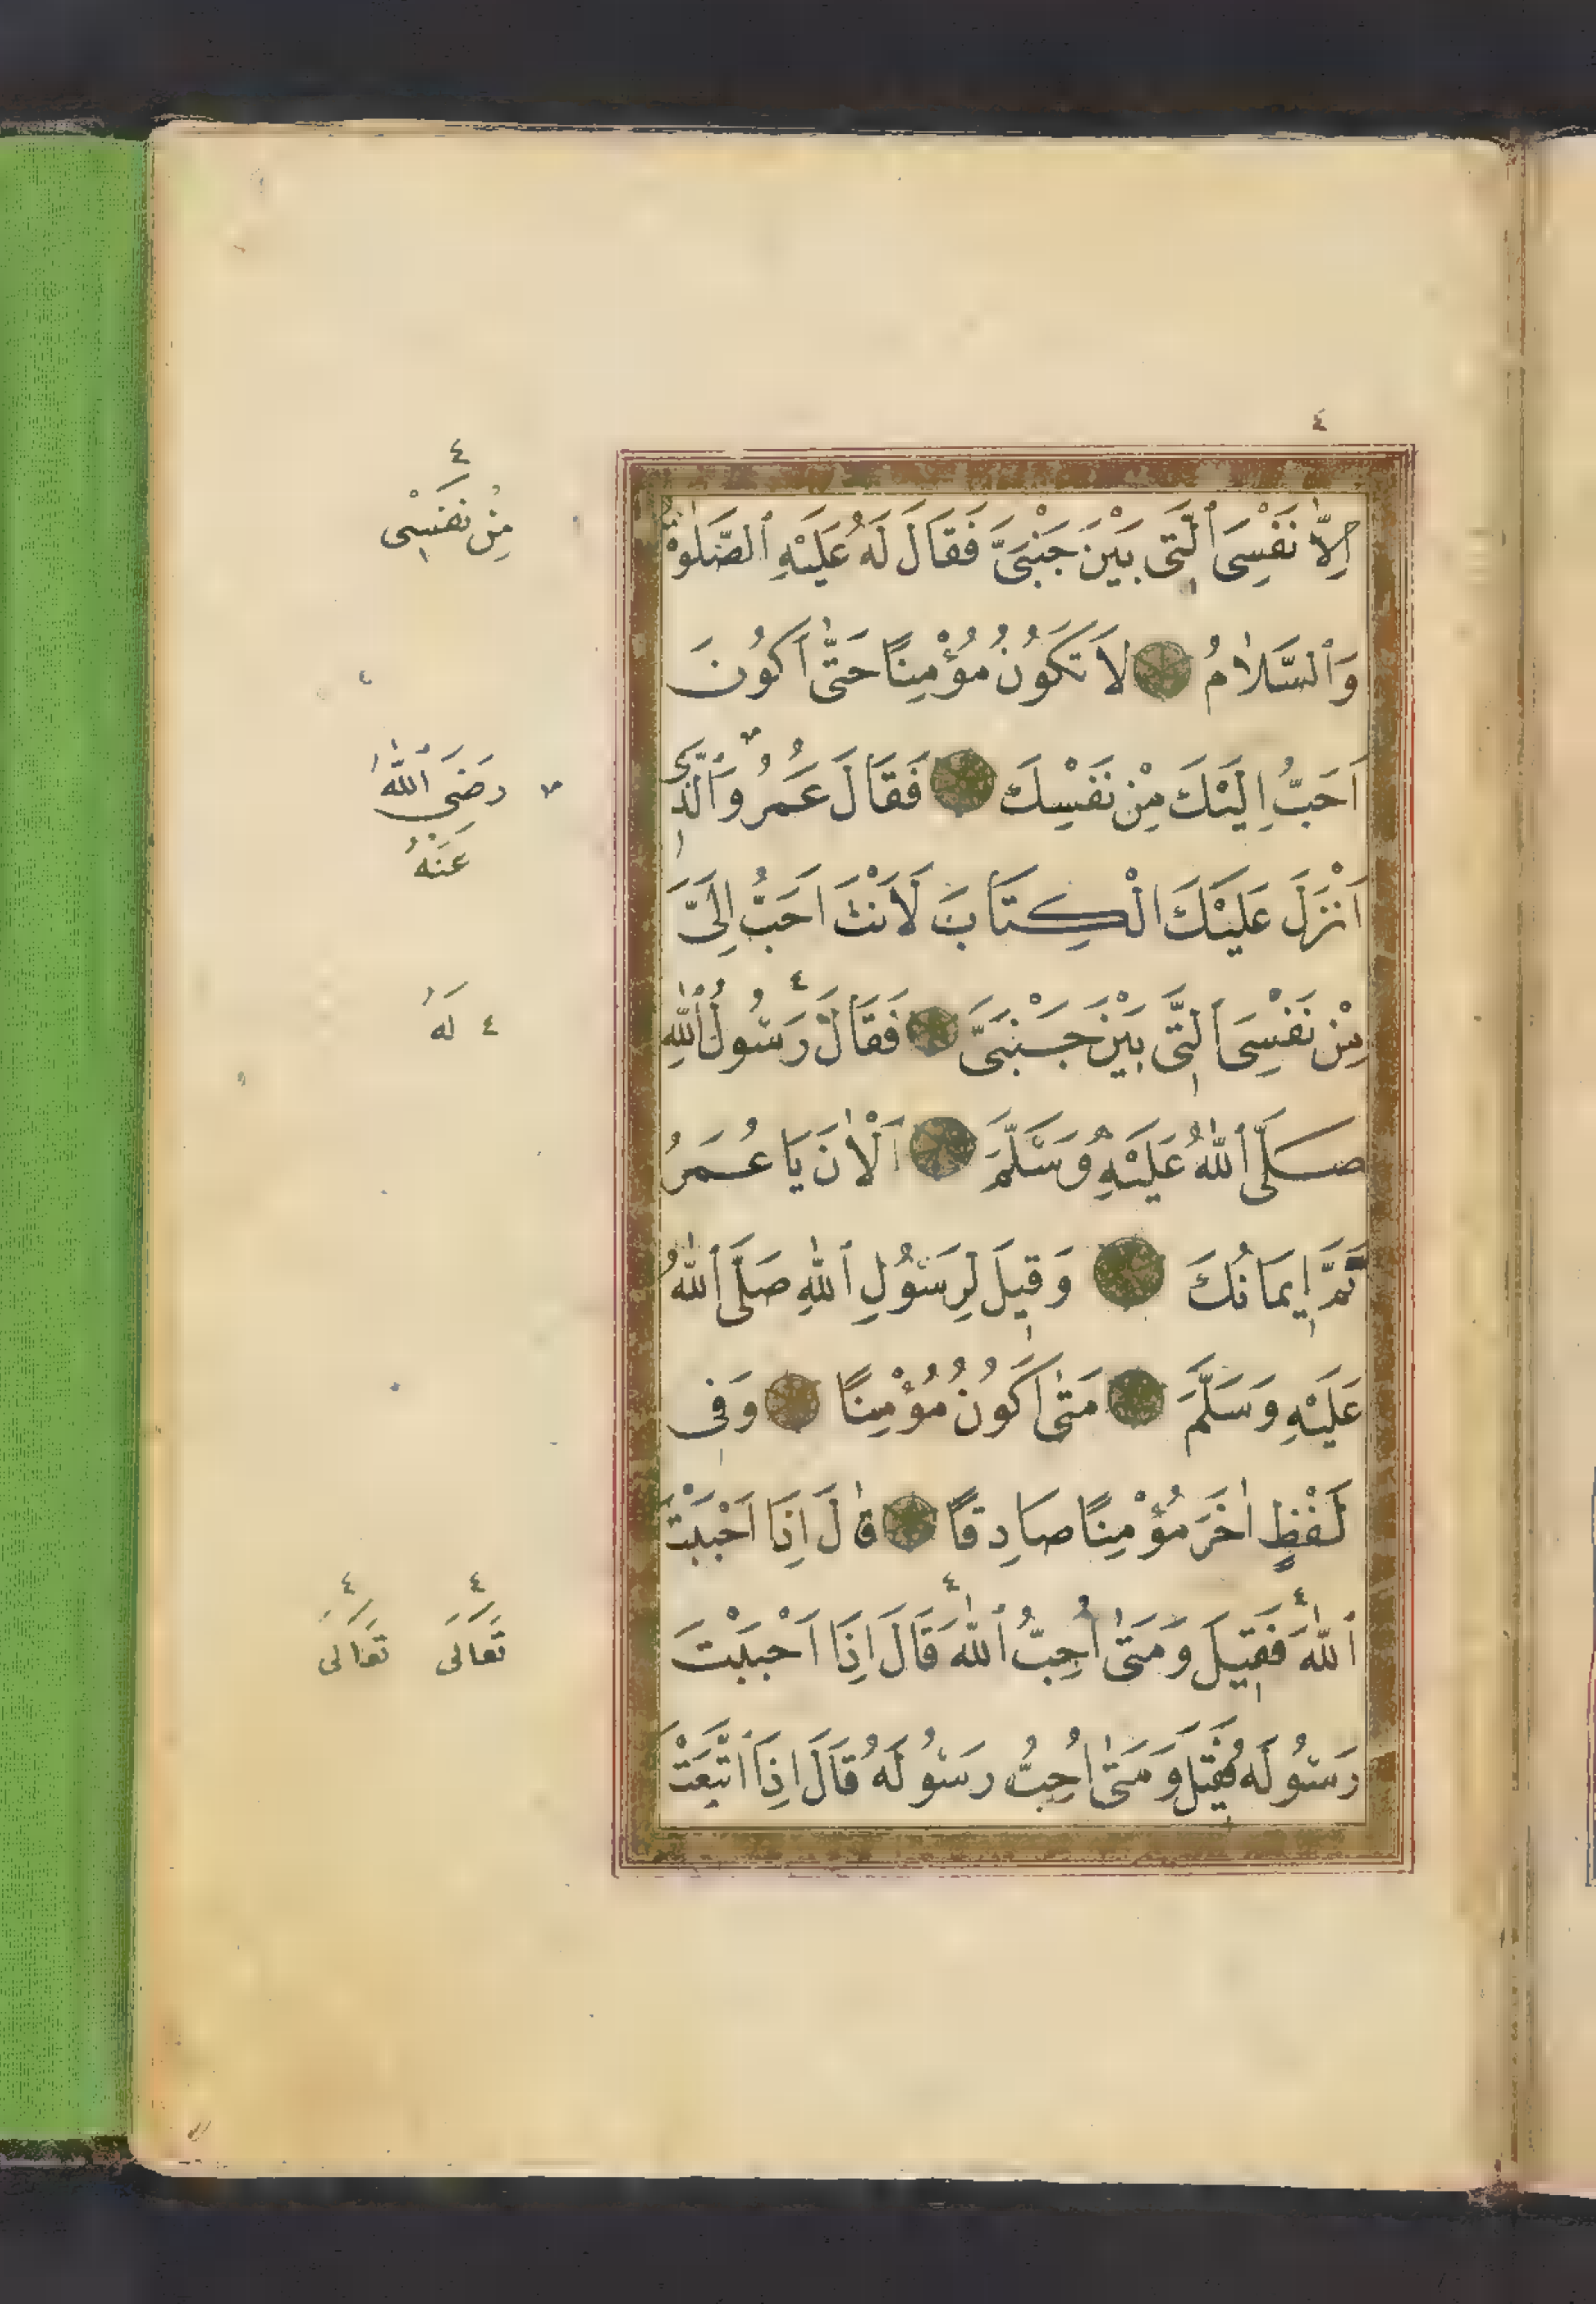 ٤
اِلَّا نَفْسِىَ ٱلَّتِى بَيْنَ جَنْبَىَّ فَقَالَ لَهُ عَلَيْهِ ٱلصَّلٰوةُ
وَٱلسَّلَامُ لَا تَكُونُ مُؤْمِنًا حَتّٰى اَكُونَ
اَحَبَّ اِلَيْكَ مِنْ نَفْسِكَ فَقَالَ عُمَرُ وَٱلَّذِى
اَنْزَلَ عَلَيْكَ الْكِتَابَ لَاَنْتَ اَحَبُّ اِلَىَّ
مِنْ نَفْسِىَ ٱلَّتِى بَيْنَ جَنْبَىَّ فَقَالَ رَسُولُ ٱللّٰهِ
صَلَّى ٱللّٰهُ عَلَيْهِ وَسَلَّمَ اَلْاٰنَ يَا عُمَرُ
تَمَّ اِيمَانُكَ وَقِيلَ لِرَسُولِ ٱللّٰهِ صَلَّى ٱللّٰهُ
عَلَيْهِ وَسَلَّمَ مَتٰى اَكُونُ مُؤْمِنًا وَفِى
لَفْظٍ اٰخَرَ مُؤْمِنًا صَادِقًا قٰالَ اِذَا اَحْبَبْتَ
ٱللّٰهَ فَقِيلَ وَمَتٰى اُحِبُّ ٱللّٰهَ قَالَ اِذَا اَحْبَبْتَ
رَسُولَهُ فَقِيلَ وَمَتٰى اُحِبُّ رَسُولَهُ قَالَ اِذَا ٱتَّبَعْتَ
٤
مِنْ نَفْسِى
رَضِىَ ٱللّٰهُ
عَنْهُ
٤ لَهُ
٤ ٤
تَعَالَى تَعَالَى